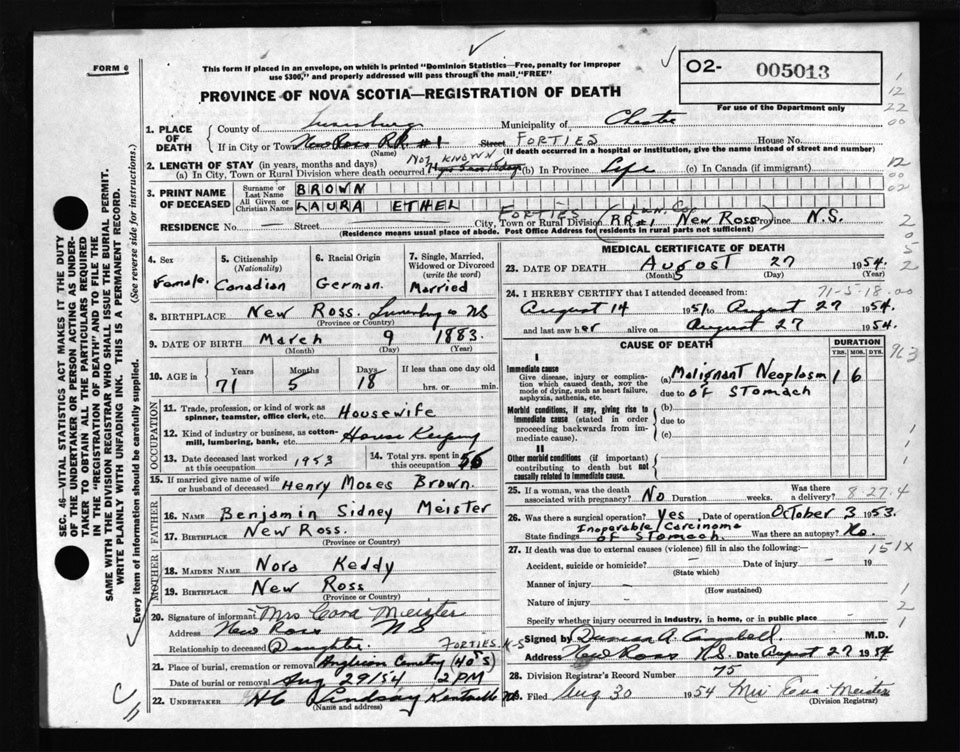 FORM 6
This form if placed in an envelope, on which is printed "Dominion Statistics—Free, penalty for improper
use $300," and properly addressed will pass through the mail "FREE"
PROVINCE OF NOVA SCOTIA—REGISTRATION OF DEATH
O2- 005013
For use of the Department only
1. PLACE OF DEATH
County of Lunenburg Municipality of Chester
If in City or Town New Ross RR #1 Street FORTIES House No.
(Name) (If death occurred in a hospital or institution, give the name instead of street and number)
2. LENGTH OF STAY (in years, months and days)
(a) In City, Town or Rural Division where death occurred NOT KNOWN (b) In Province Life (c) In Canada (if immigrant)
3. PRINT NAME OF DECEASED
Surname or Last Name BROWN
All Given or Christian Names LAURA ETHEL
RESIDENCE No. — Street — City, Town or Rural Division FORTIES Lun. Co. RR#1 New Ross Province N.S.
(Residence means usual place of abode. Post Office Address for residents in rural parts not sufficient)
4. Sex Female
5. Citizenship (Nationality) Canadian
6. Racial Origin German
7. Single, Married, Widowed or Divorced (write the word) Married
8. BIRTHPLACE New Ross. Lunenburg Co NS
(Province or Country)
9. DATE OF BIRTH March 9 1883
(Month) (Day) (Year)
10. AGE in Years 71 Months 5 Days 18 If less than one day old hrs. or min.
OCCUPATION
11. Trade, profession, or kind of work as spinner, teamster, office clerk, etc. Housewife
12. Kind of industry or business, as cotton-mill, lumbering, bank, etc. House Keeping
13. Date deceased last worked at this occupation 1953
14. Total yrs. spent in this occupation 56
15. If married give name of wife or husband of deceased Henry Moses Brown.
FATHER
16. NAME Benjamin Sidney Meister
17. BIRTHPLACE New Ross.
(Province or Country)
MOTHER
18. MAIDEN NAME Nora Keddy
19. BIRTHPLACE New Ross
(Province or Country)
20. Signature of informant Mrs Cora Meister
Address New Ross NS
Relationship to deceased Daughter.
21. Place of burial, cremation or removal Anglican Cemetery (40's) FORTIES. N.S
Date of burial or removal Aug 29/54 2 PM
22. UNDERTAKER HC Lindsay Kentville NS
(Name and address)
MEDICAL CERTIFICATE OF DEATH
23. DATE OF DEATH August 27 1954.
(Month) (Day) (Year)
24. I HEREBY CERTIFY that I attended deceased from: 71-5-18.00
August 14 1951 to August 27 1954.
and last saw her alive on August 27 1954.
CAUSE OF DEATH
DURATION
YRS. MOS. DYS.
I
Immediate cause
Give disease, injury or complication which caused death, not the mode of dying, such as heart failure, asphyxia, asthenia, etc.
(a) Malignant Neoplasm 1 6
due to of Stomach
Morbid conditions, if any, giving rise to immediate cause (stated in order proceeding backwards from immediate cause).
(b)
due to
(c)
II
Other morbid conditions (if important) contributing to death but not causally related to immediate cause.
25. If a woman, was the death associated with pregnancy? No Duration weeks. Was there a delivery? 8.27.4
26. Was there a surgical operation? Yes. Date of operation October 3 1953.
State findings Inoperable Carcinoma of Stomach. Was there an autopsy? No.
27. If death was due to external causes (violence) fill in also the following:— 151X
Accident, suicide or homicide? — Date of injury — 19
(State which)
Manner of injury —
(How sustained)
Nature of injury —
Specify whether injury occurred in industry, in home, or in public place
Signed by Duncan A. Campbell. M.D.
Address New Ross N.S. Date August 27 1954
28. Division Registrar's Record Number 75
29. Filed Aug 30 1954 Mrs Cora Meister
(Division Registrar)
SEC. 46—VITAL STATISTICS ACT MAKES IT THE DUTY
OF THE UNDERTAKER OR PERSON ACTING AS UNDERTAKER TO OBTAIN ALL THE PARTICULARS REQUIRED
IN THE "REGISTRATION OF DEATH" AND TO FILE THE
SAME WITH THE DIVISION REGISTRAR WHO SHALL ISSUE THE BURIAL PERMIT.
WRITE PLAINLY WITH UNFADING INK. THIS IS A PERMANENT RECORD.
Every item of information should be carefully supplied. (See reverse side for instructions.)
1
12
22
00
12
00
02
2
0
5
2
963
1
1
1
2
1